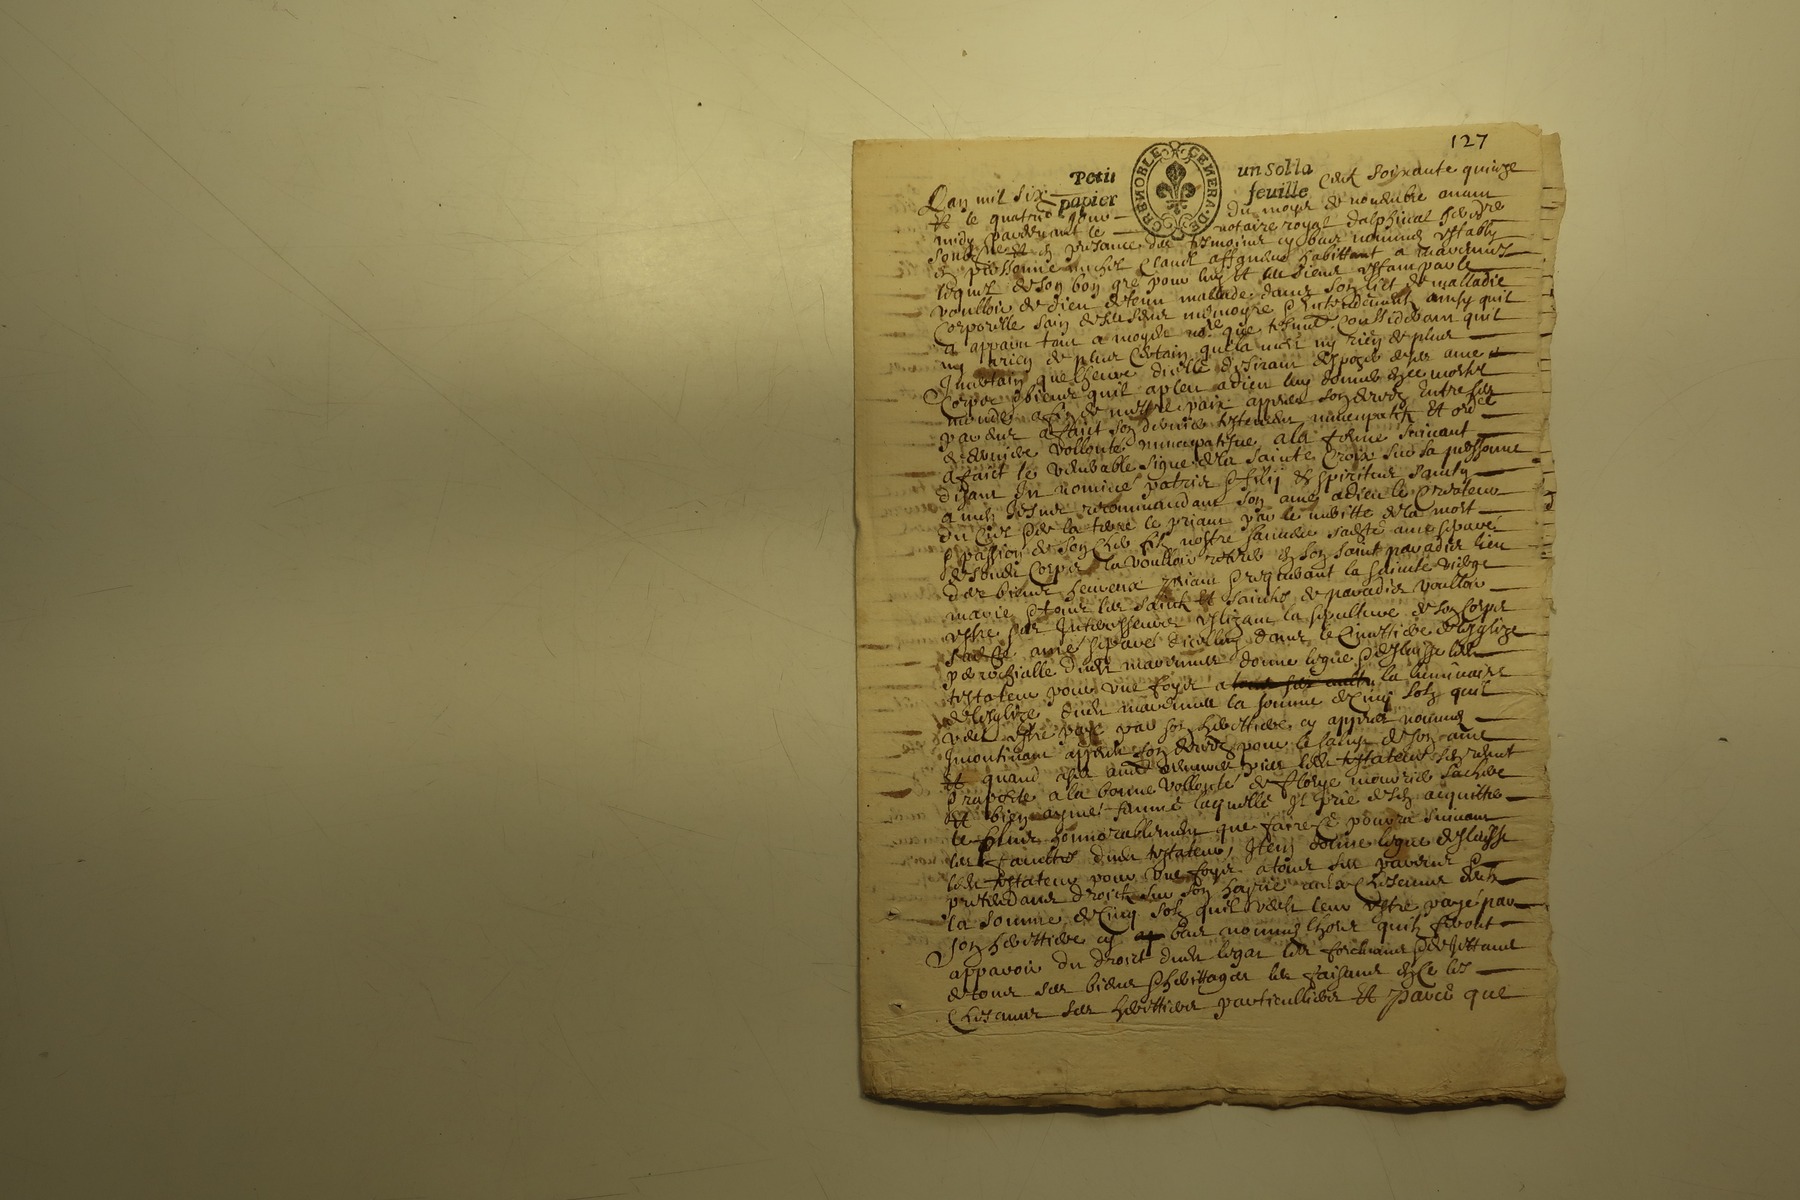 127
Petit papier
GRENOBLE GENERA. DE
un sol la feuille
Lan mil six cent soixante quinze
et le quatrie jour du moys de novembre avant
midy pardevant le notaire royal dalphinal heredre
soubzne et en presance des tesmoins cy bas nommes estably
en personne Claud habittant a
lequel de son bon gre pour luy et les siens estant par le
voulloir de dieu detenu mallade dans son lict de malladie
corporelle sain de ses sens memoyre et entendement ainsy quil
a apparu tant a moydit nore que tesmoins considerant quil
ny a rien de plus certain que la mort ny rien de plus
incertain que lheure dicelle desirant dispozer de ses ame
corps et biens quil a pleu a dieu luy donner en ce mortel
monde affin de mettre paix appres son deces entre ses
parens a faict son dernier testement nuncupatif et ordre
de derniere vollonte nuncupative a la forme suivant
a faict le venerable signe de la sainte Croix sur sa personne
disant In nomine patris et filij et spiritus sancty
amen Jesus recommandant son ame a dieu le createur
du ciel et de la terre le priant par le meritte de la mort
et passion de son cher filz nostre sauveur sadte ame separee
de sondt corps la voulloir retirer en son saint paradis lieu
des biens heureux priant et requerant la sainte vierge
marie et tous les saints et saintes de paradis voulloir
estre ses intersesseurs eslizant la sepulture de son corps
sadte ame separee dicelluy dans le cimettiere de leglize
parochialle dudt donne legue et delaisse ledt
testateur pour une foys a la luminaire
de leglize dudt la somme de cinq solz quil
veult estre paye par son herettiere cy appres nommee
incontinant appres son deces pour le salut de son ame
et quand aux autres œuvres pies ledt testateur sen remet
et raporte a la bonne vollonte de sa chere
et bien aymee famme laquelle il prie de sen acquitter
le plus honnorablement que faire ce pourra suivant
les facultes dudt testateur, Item donne legue et delaisse
ledt testateur pour une foys a tous ses parens et
pretendans droict sur son hoyrie et a chescung deux
la somme de cinq solz quil veult leur estre paye par
son herettiere cy bas nommee lhors quil feront
apparoir du droict dudt legat les forcluant et dejettant
de tous ses biens et herittages les faisant en ce les
chescungs ses herettiers particulliers et parce que